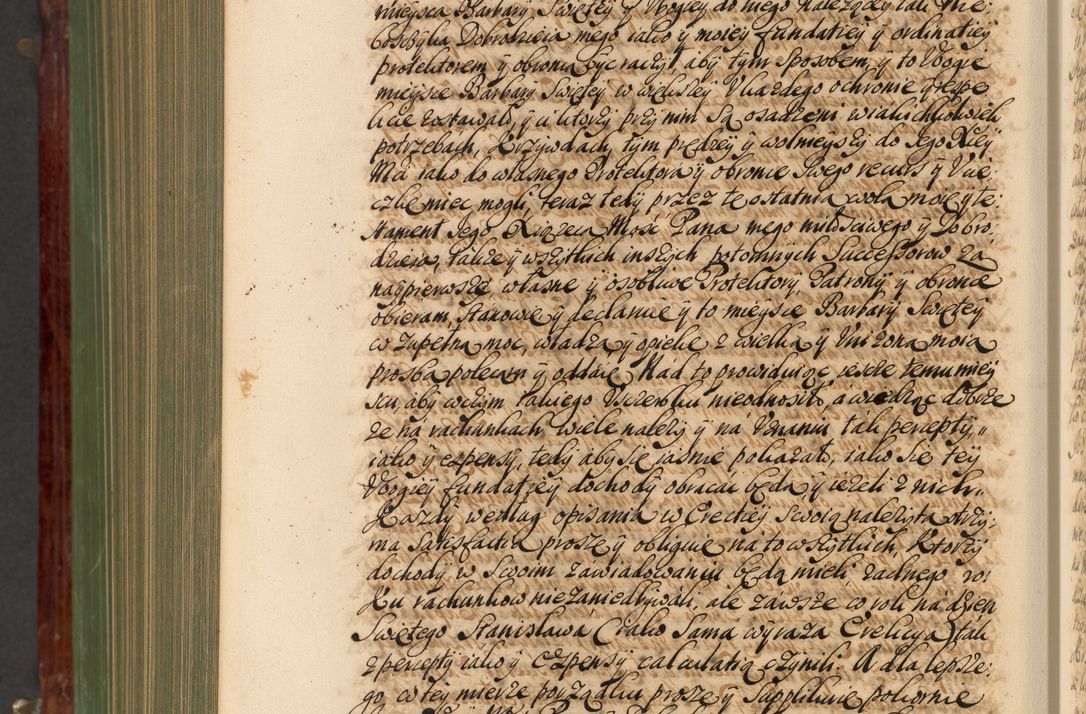 mieysca Barbary Swiętey y Vbogiey do niego należącey tak Nie:
boszczyka Dobrodzieia mego iako y moiey fundatiey y ordinatiey
protektorem y obroną być raczył aby tym sposobem, y to Vbogie
mieysce Barbary Swiętey w większey V każdego ochronie y respe
kcie zostawało, y ci ktorzy przy nim są osadzeni w iakichkolwiek
potrzebach, Krzywdach, tym prędzey y wolnieyszy do Jego Xcey
Mci iako do własnego Protektora y obronce swego recurs y Vcie:
czkę miec mogli, teraz tedy przez tę ostatnią wolą moię y te:
stament Jego Xiązęcą Mość Pana mego miłościwego y Dobro:
dzieia, także y wszytkich inszych potomnych Successorow za
naypierwsze, własne y osobliwe Protektory Patrony y obronce
obieram, stanowię y declaruię y to mieysce Barbary Swiętey
w zupełną moc, władzą y opiekę z wielką y Vniżoną moią
prosbą polecam y oddaię. Nad to prowiduiąc ieszcze temu miey
scu, aby w czym iakiego Vszczerbku nieodnosiło, a wiedząc dobrze
że na rachunkach wiele należy y na Vznaniu tak percepty,
iako y expensy, tedy aby się iasnie pokazało, iako się tey
Vbogiey fundatiey dochody obracac będą y ieżeli z nich
Każdy według opisania w Erectiey swoią należytą otrzy:
ma satisfactią proszę y obliguię na to wszytkich, Ktorzy
dochody w swoim zawiadowaniu będą mieli, żadnego ro:
Ku rachunkow niezaniedbywali, ale zawsze co rok na dzien
Swiętego Stanisława (iako sama wyraża Erectia) tak
z percepty iako y Expensy calculatią czynili. A dla lepsze:
go w tey mierze porządku proszę y supplikuię pokornie